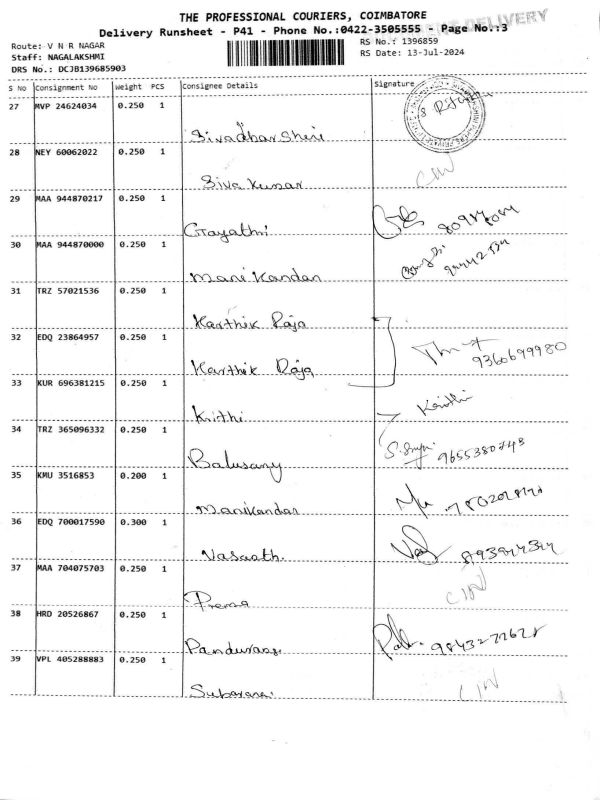 THE PROFESSIONAL COURIERS, COIMBATORE
DELIVERY
Delivery Runsheet - P41 - Phone No.:0422-3505555 - Page No.:3
Route: V N R NAGAR
RS No.: 1396859
Staff: NAGALAKSHMI
RS Date: 13-Jul-2024
DRS No.: DCJB139685903
S No Consignment No Weight PCS Consignee Details Signature
27 MVP 24624034 0.250 1
Sivadharshini
28 NEY 60062022 0.250 1
Siva Kumar
29 MAA 944870217 0.250 1
Gayathri
30 MAA 944870000 0.250 1
Mani Kandan
31 TRZ 57021536 0.250 1
Karthik Raja
32 EDQ 23864957 0.250 1
Karthik Raja 9360699980
33 KUR 696381215 0.250 1
Krithi
34 TRZ 365096332 0.250 1
Balusamy 9655380743
35 KMU 3516853 0.200 1
Manikandan
36 EDQ 700017590 0.300 1
Vasanth.
37 MAA 704075703 0.250 1
Prema
38 HRD 20526867 0.250 1
Pandurang.
39 VPL 405288883 0.250 1